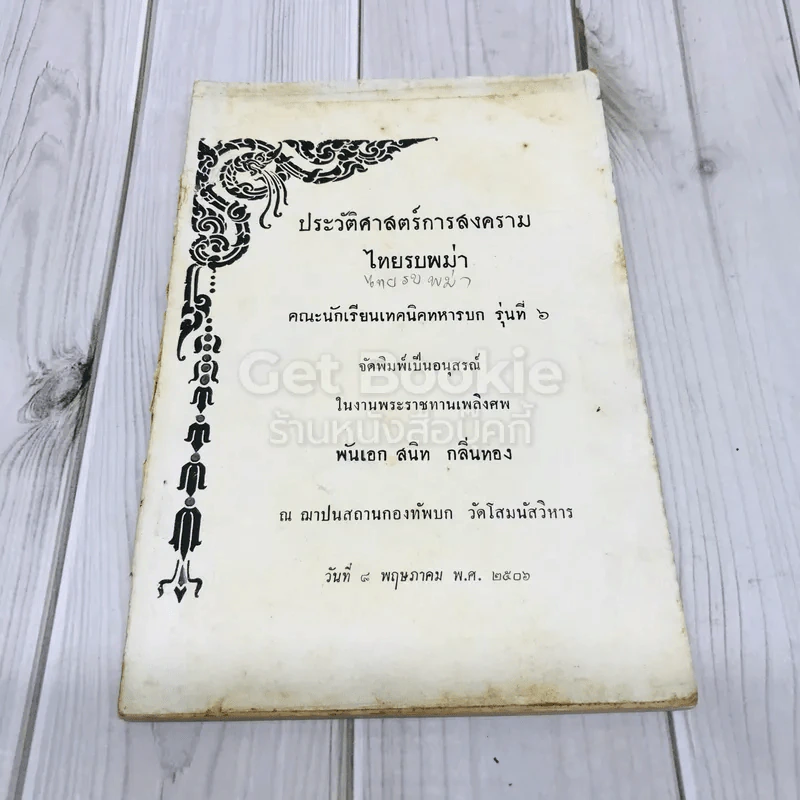 ประวัติศาสตร์การสงคราม
ไทยรบพม่า
ไทยรบพม่า
คณะนักเรียนเทคนิคทหารบก รุ่นที่ ๖
จัดพิมพ์เป็นอนุสรณ์
Get Bookie
ในงานพระราชทานเพลิงศพ
ร้านหนังสือบุ๊คกี้
พันเอก สนิท กลิ่นทอง
ณ ฌาปนสถานกองทัพบก วัดโสมนัสวิหาร
วันที่ ๘ พฤษภาคม พ.ศ. ๒๕๐๖